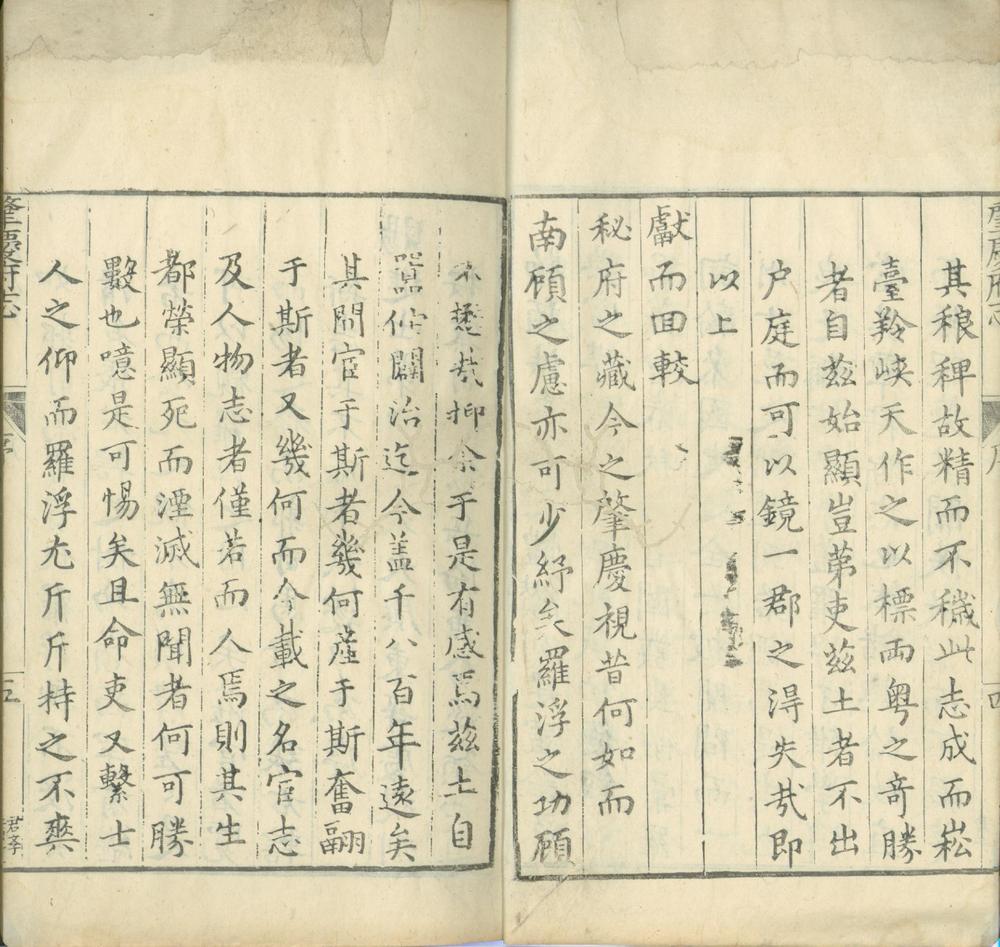 其稂稗故精而不穢此志成而崧
臺羚峽天作之以標兩粵之竒勝
者自茲始顯豈苐吏茲土者不出
户庭而可以鏡一郡之淂失㢤即
以上
獻而囬較
秘府之藏今之肇慶視昔何如而
南顧之慮亦可少紓矣羅浮之功顧
不懋㢤抑余于是有感焉茲土自
置倅闢治迄今盖千八百年遠矣
其間宦于斯者幾何產于斯奮翮
于斯者又幾何而今載之名宦志
及人物志者僅若而人焉則其生
都榮顯死而湮滅無聞者何可勝
數也噫是可惕矣且命吏又繫士
人之仰而羅浮尤斤斤持之不爽
肇慶府志
序
五
君孝